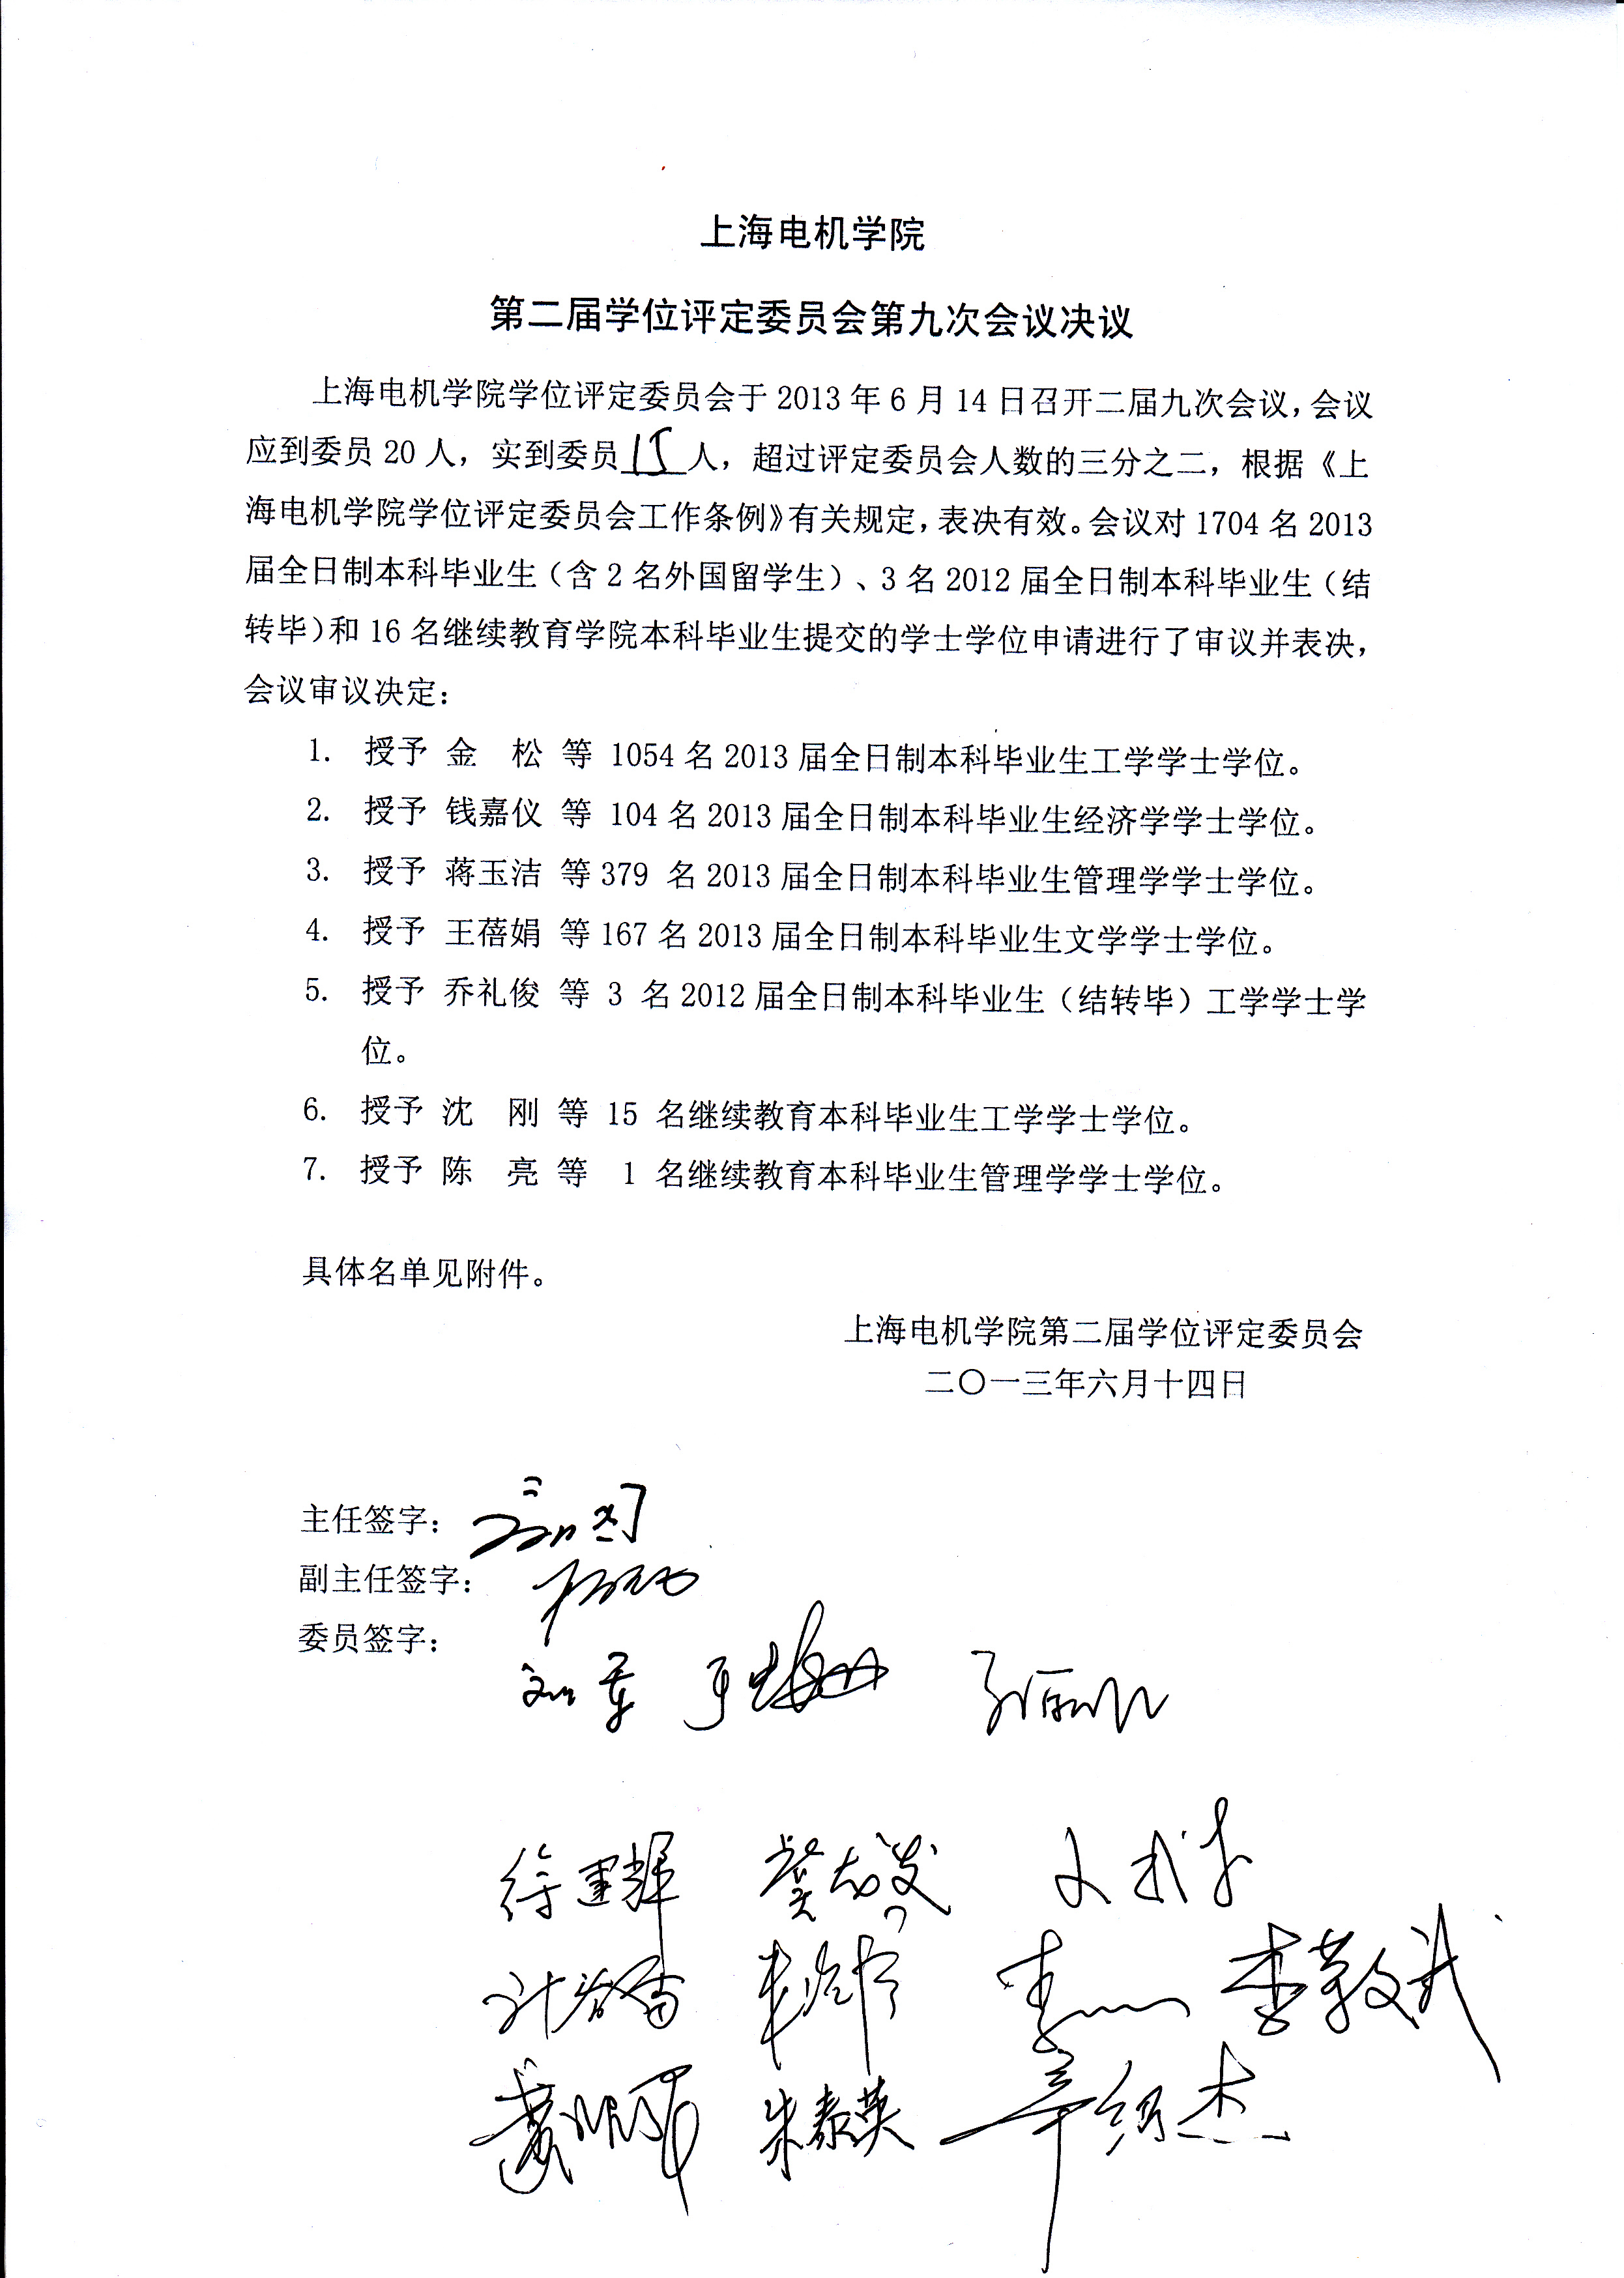 上海电机学院
第二届学位评定委员会第九次会议决议
上海电机学院学位评定委员会于 2013 年 6 月 14 日召开二届九次会议，会议
应到委员 20 人，实到委员15人，超过评定委员会人数的三分之二，根据《上
海电机学院学位评定委员会工作条例》有关规定，表决有效。会议对 1704 名 2013
届全日制本科毕业生（含 2 名外国留学生）、3 名 2012 届全日制本科毕业生（结
转毕）和 16 名继续教育学院本科毕业生提交的学士学位申请进行了审议并表决，
会议审议决定：
1. 授予 金 松 等 1054 名 2013 届全日制本科毕业生工学学士学位。
2. 授予 钱嘉仪 等 104 名 2013 届全日制本科毕业生经济学学士学位。
3. 授予 蒋玉洁 等 379 名 2013 届全日制本科毕业生管理学学士学位。
4. 授予 王蓓娟 等 167 名 2013 届全日制本科毕业生文学学士学位。
5. 授予 乔礼俊 等 3 名 2012 届全日制本科毕业生（结转毕）工学学士学
位。
6. 授予 沈 刚 等 15 名继续教育本科毕业生工学学士学位。
7. 授予 陈 亮 等 1 名继续教育本科毕业生管理学学士学位。
具体名单见附件。
上海电机学院第二届学位评定委员会
二〇一三年六月十四日
主任签字：
副主任签字：
委员签字：
徐建辉
朱泰英